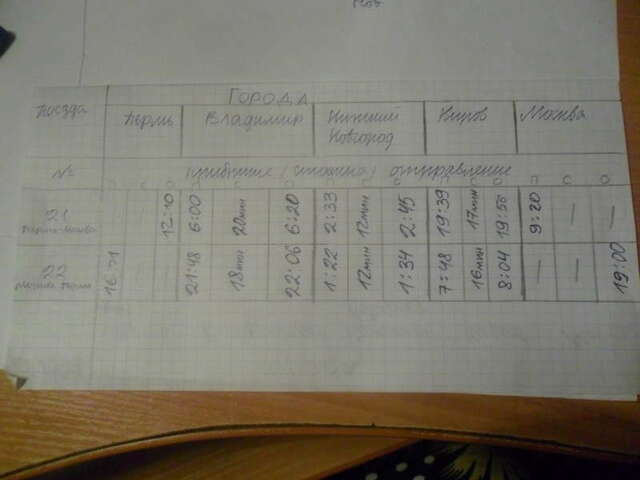 Города
Поезда Пермь Владимир Нижний Новгород Киров Москва
№ прибытие / стоянка / отправление
П С О П С О П С О П С О П С О
21 Пермь-Москва — — 12:10 6:00 20мин 6:20 2:33 12мин 2:45 19:39 17мин 19:56 9:20 — —
22 Москва-Пермь 16:21 — — 21:48 18мин 22:06 1:22 12мин 1:34 7:48 16мин 8:04 — — 19:00